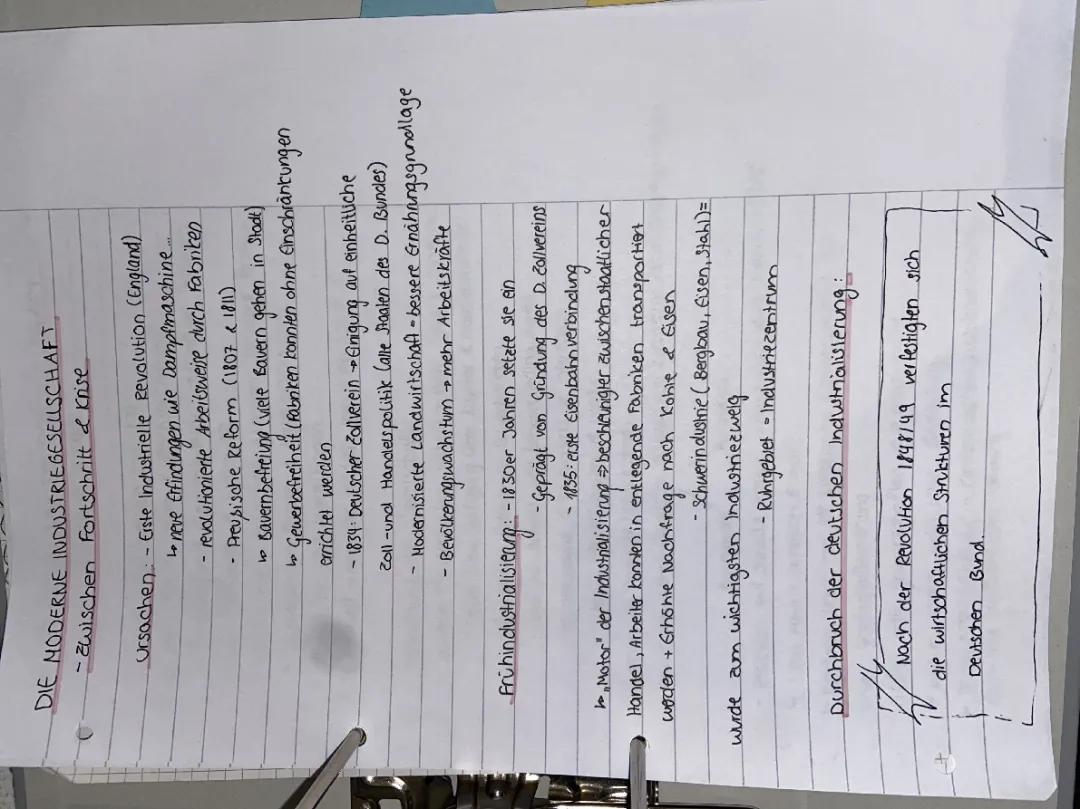 DIE MODERNE INDUSTRIEGESELLSCHAFT
- zwischen Fortschritt & Krise
Ursachen: - Erste Industrielle Revolution (England)
↳ neue Erfindungen wie Dampfmaschine...
- revolutionierte Arbeitsweise durch Fabriken
- Preußische Reform (1807 & 1811)
↳ Bauernbefreiung (viele Bauern gehen in Stadt)
↳ Gewerbefreiheit (Fabriken konnten ohne Einschränkungen
errichtet werden
- 1834: Deutscher Zollverein → Einigung auf einheitliche
Zoll- und Handelspolitik (alle Staaten des D. Bundes)
- Modernisierte Landwirtschaft = bessere Ernährungsgrundlage
- Bevölkerungswachstum → mehr Arbeitskräfte
Frühindustrialisierung: - 1830er Jahren setzte sie ein
- Geprägt von Gründung des D. Zollvereins
- 1835: erste Eisenbahnverbindung
↳ „Motor" der Industrialisierung ⇒ beschleunigter zwischenstaatlicher
Handel, Arbeiter konnten in entlegende Fabriken transportiert
werden + Erhöhte Nachfrage nach Kohle & Eisen
- Schwerindustrie (Bergbau, Eisen, Stahl) =
wurde zum wichtigsten Industriezweig
- Ruhrgebiet = Industriezentrum
Durchbruch der deutschen Industrialisierung:
Nach der Revolution 1848/49 verfestigten sich
die wirtschaftlichen Strukturen im
Deutschen Bund.